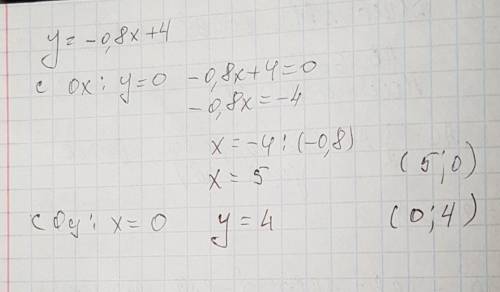 y = -0,8x+4
с Ox: y=0 -0,8x+4=0
-0,8x=-4
x=-4:(-0,8)
x = 5 (5;0)
с Oy: x=0 y=4 (0;4)